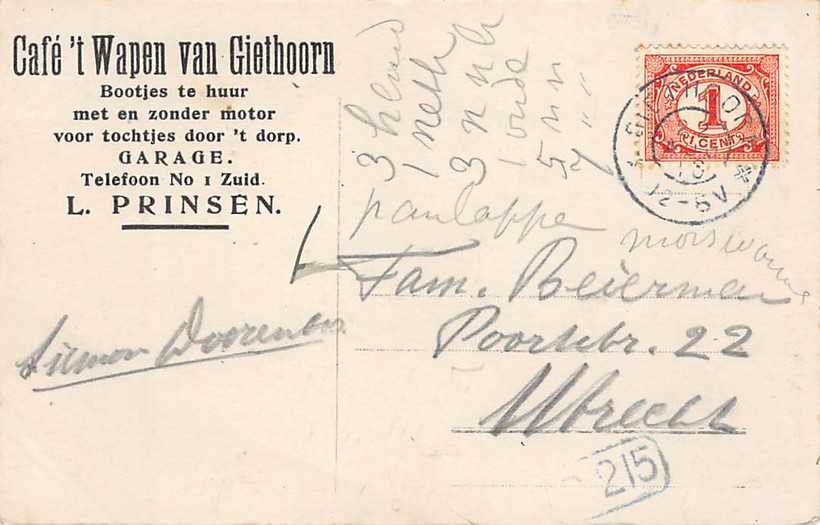 Café 't Wapen van Giethoorn
Bootjes te huur
met en zonder motor
voor tochtjes door 't dorp.
GARAGE.
Telefoon No 1 Zuid.
L. PRINSEN.
Siemon Doorenbos
3 hemd
1 neth
3 n n b
1 oude
5 n n
7 " "
panlappe
Fam. Beierman
Poortstr. 22
Utrecht
NEDERLAND
1
1 CENT
12-5 V
215